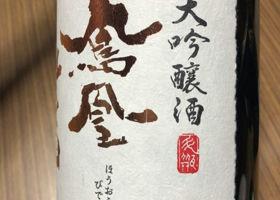 大吟醸酒
鳳凰
ほうおう
びで